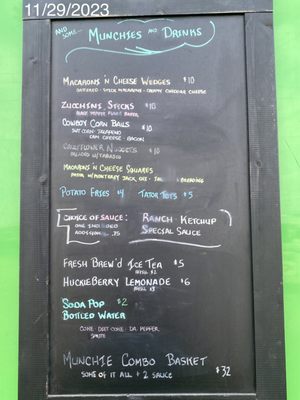 11/29/2023
AND SOME... MUNCHIES AND DRINKS
MACARONI 'N CHEESE WEDGES $10
BATTERED - ELBOW MACARONI - CREAMY CHEDDAR CHEESE
ZUCCHINI STICKS $10
BLACK PEPPER PANKO BATTER
COWBOY CORN BALLS $10
SWT CORN - JALAPENO
CRM CHEESE - BACON
CAULIFLOWER NUGGETS $10
MACARONI 'N CHEESE SQUARES
PASTA W/ MONTEREY JACK, CHZ - JAL BREADING
POTATO FRIES $4 TATOR TOTS $5
CHOICE OF SAUCE: RANCH KETCHUP
ONE INCLUDED SPECIAL SAUCE
ADDITIONAL .75
FRESH BREW'D ICE TEA $5
REFILL $2
HUCKLEBERRY LEMONADE $6
REFILL $3
SODA POP $2
BOTTLED WATER
COKE - DIET COKE - DR. PEPPER
SPRITE
MUNCHIE COMBO BASKET $32
SOME OF IT ALL + 2 SAUCE